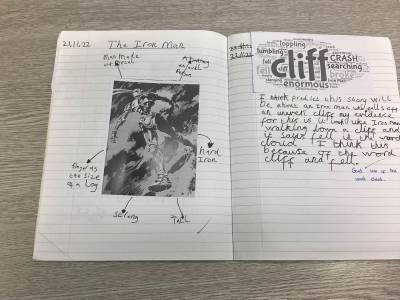 23/11/22
The Iron Man
Man Made
of
as well
finger as
the size
of a log
hard
Iron
strong
Tall
toppling
CRASH
searching
cliff
broke
fell
enormous
I think predict this story will
be about an Iron man who falls off
an uneven cliff my evidence
for this is it looks like Iron man
walking down a cliff and
it says fell in the word
cloud I think this
because of the word
cliff and fell.
Good use of the
word cloud.